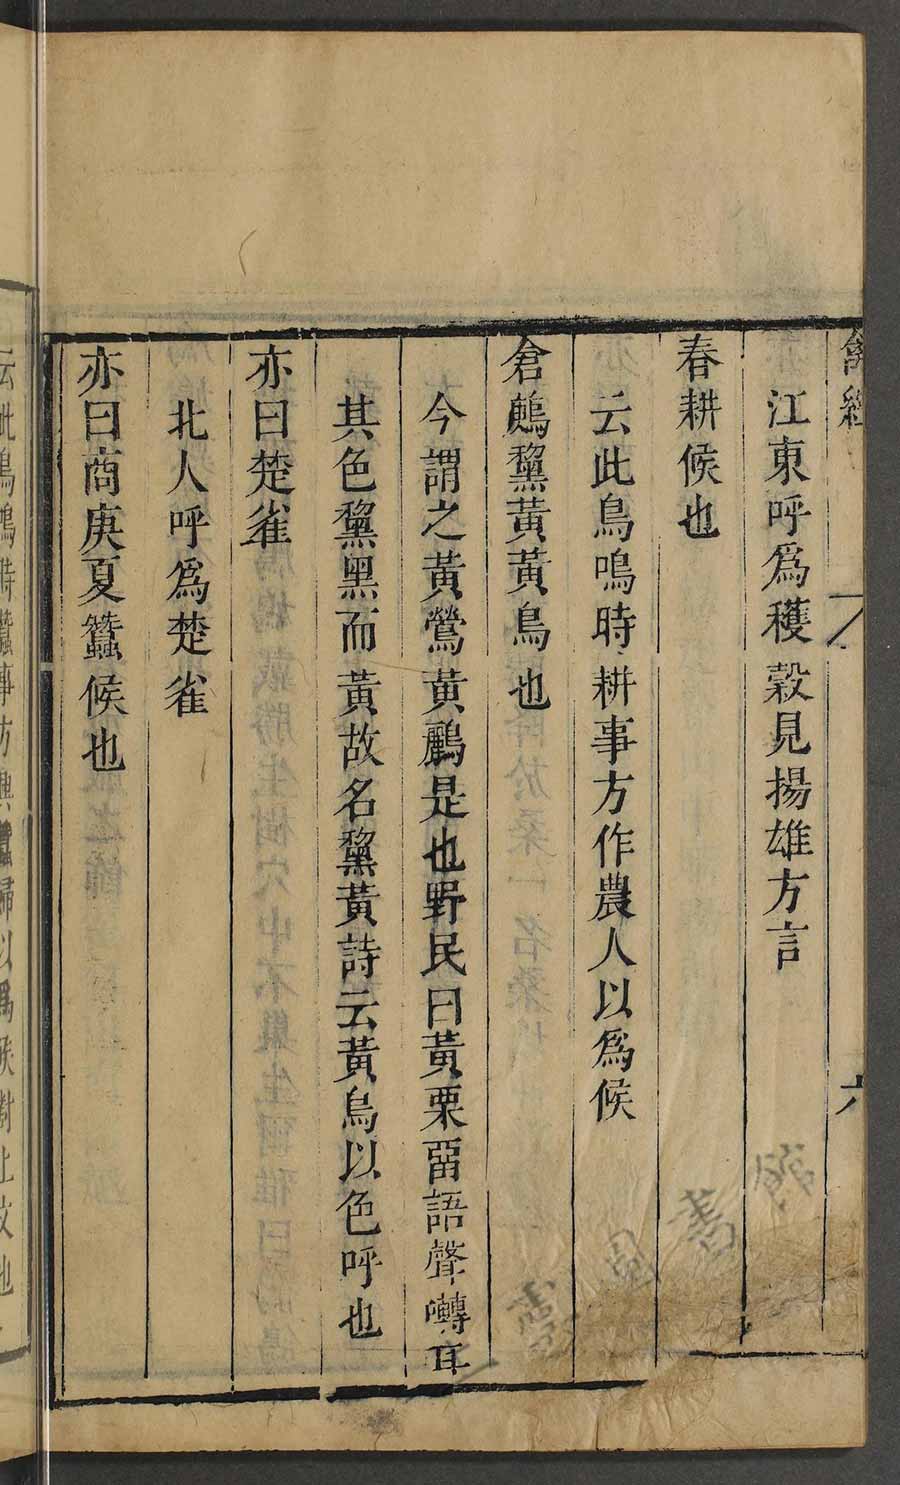 禽經
六
江東呼爲穫穀見揚雄方言
春耕候也
云此鳥鳴時耕事方作農人以爲候
倉鶊黧黃黃鳥也
今謂之黃鶯黃鸝是也野民曰黃栗畱語聲囀耳
其色黧黑而黃故名黧黃詩云黃鳥以色呼也
亦曰楚雀
北人呼爲楚雀
亦曰商庚夏蠶候也
云此鳥鳴時蠶事方興蠶婦以爲候